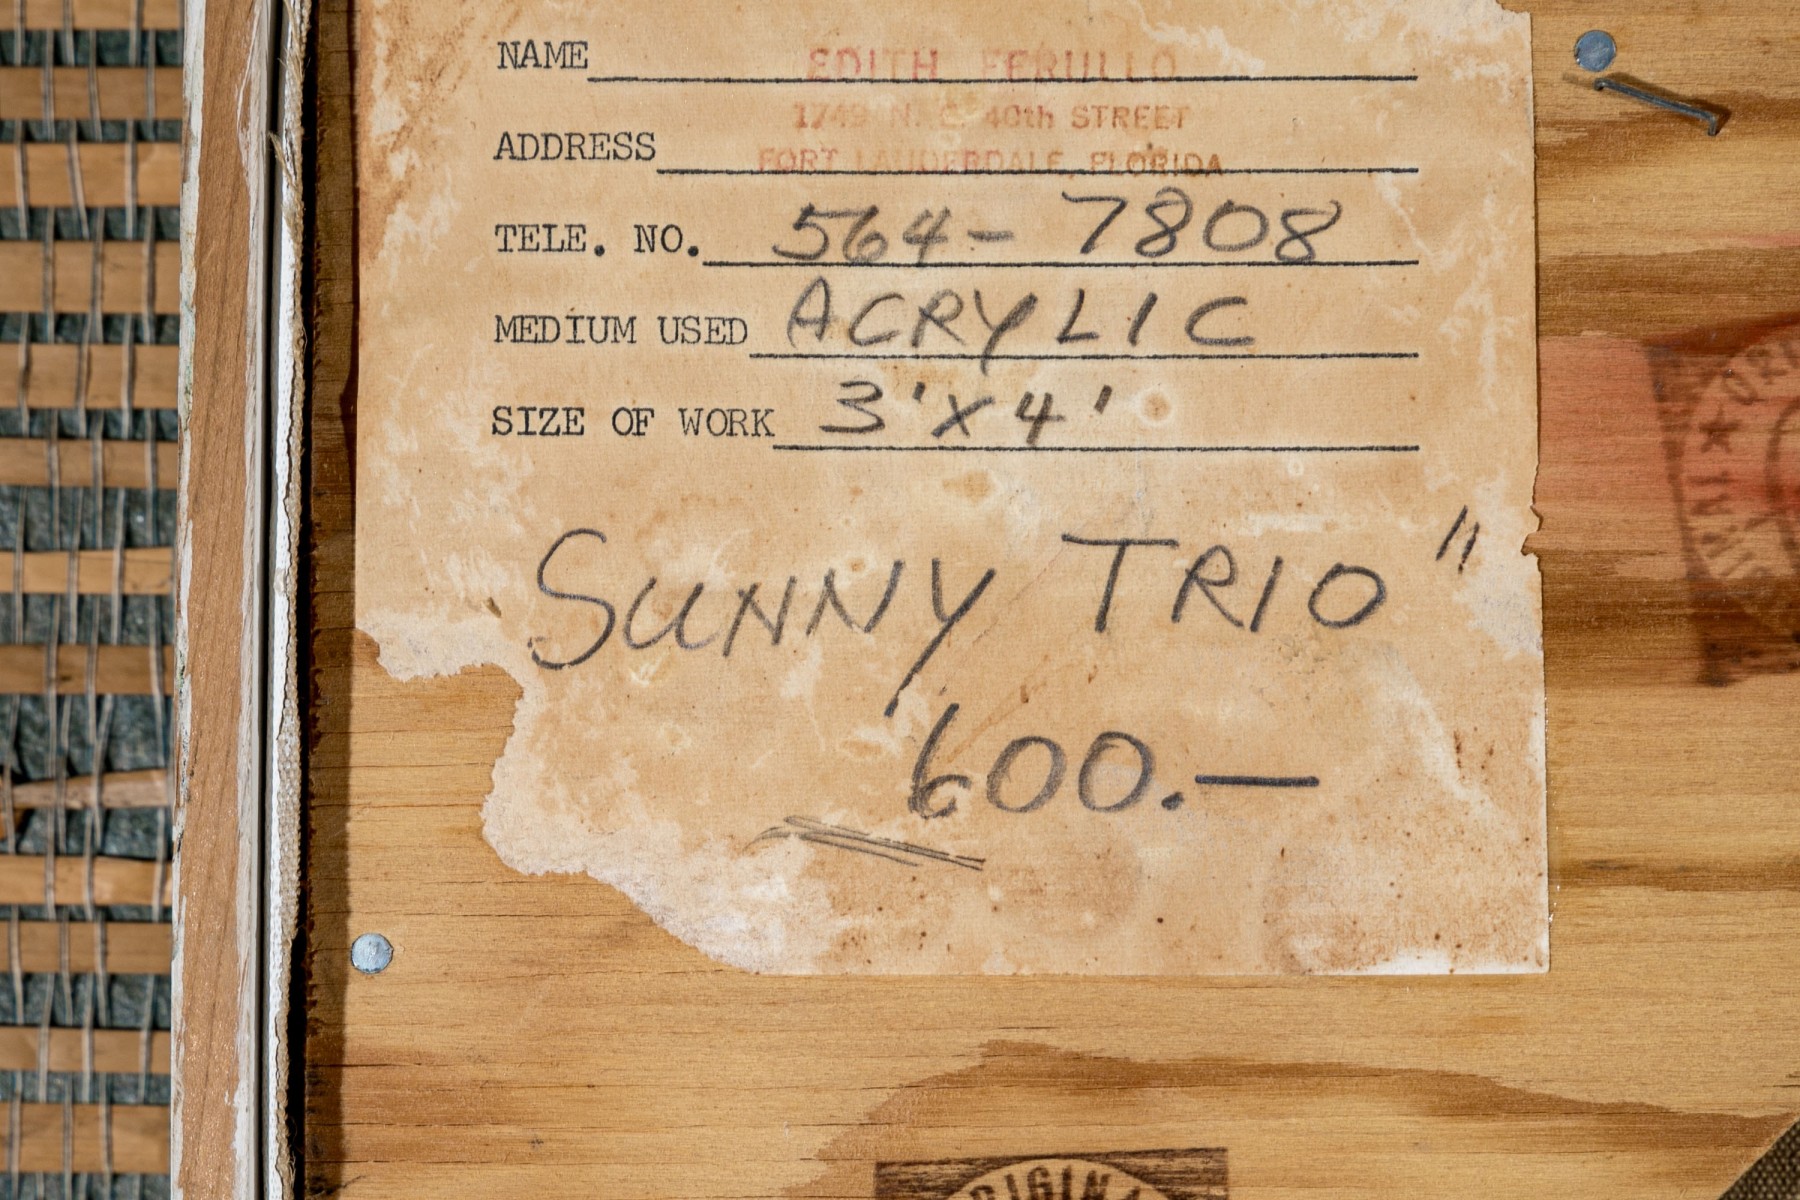 NAME EDITH FERULLO
1749 N. E. 40th STREET
ADDRESS FORT LAUDERDALE, FLORIDA
TELE. NO. 564-7808
MEDIUM USED ACRYLIC
SIZE OF WORK 3'X4'
SUNNY TRIO"
600.—